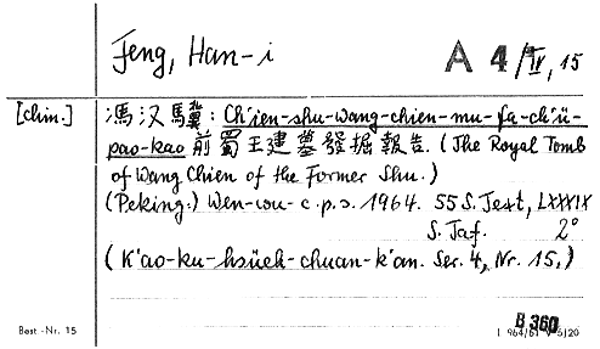 Feng, Han-i
A 4/IV, 15
[chin.] 馮汉驥: Ch'ien-shu-wang-chien-mu-fa-ch'ü-
pao-kao 前蜀王建墓發掘報告. (The Royal Tomb
of Wang Chien of the Former Shu.)
(Peking:) Wen-wu-c.p.s. 1964. 55 S. Text, LXXXIX
S. Taf. 2°
(K'ao-ku-hsüeh-chuan-k'an. Ser. 4, Nr. 15.)
B 360
Best.-Nr. 15